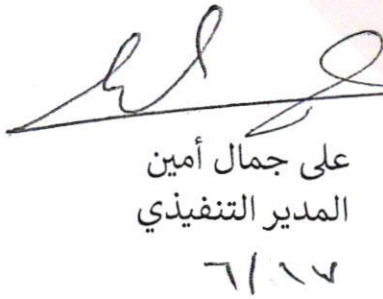 على جمال أمين
المدير التنفيذي
٦/١٧